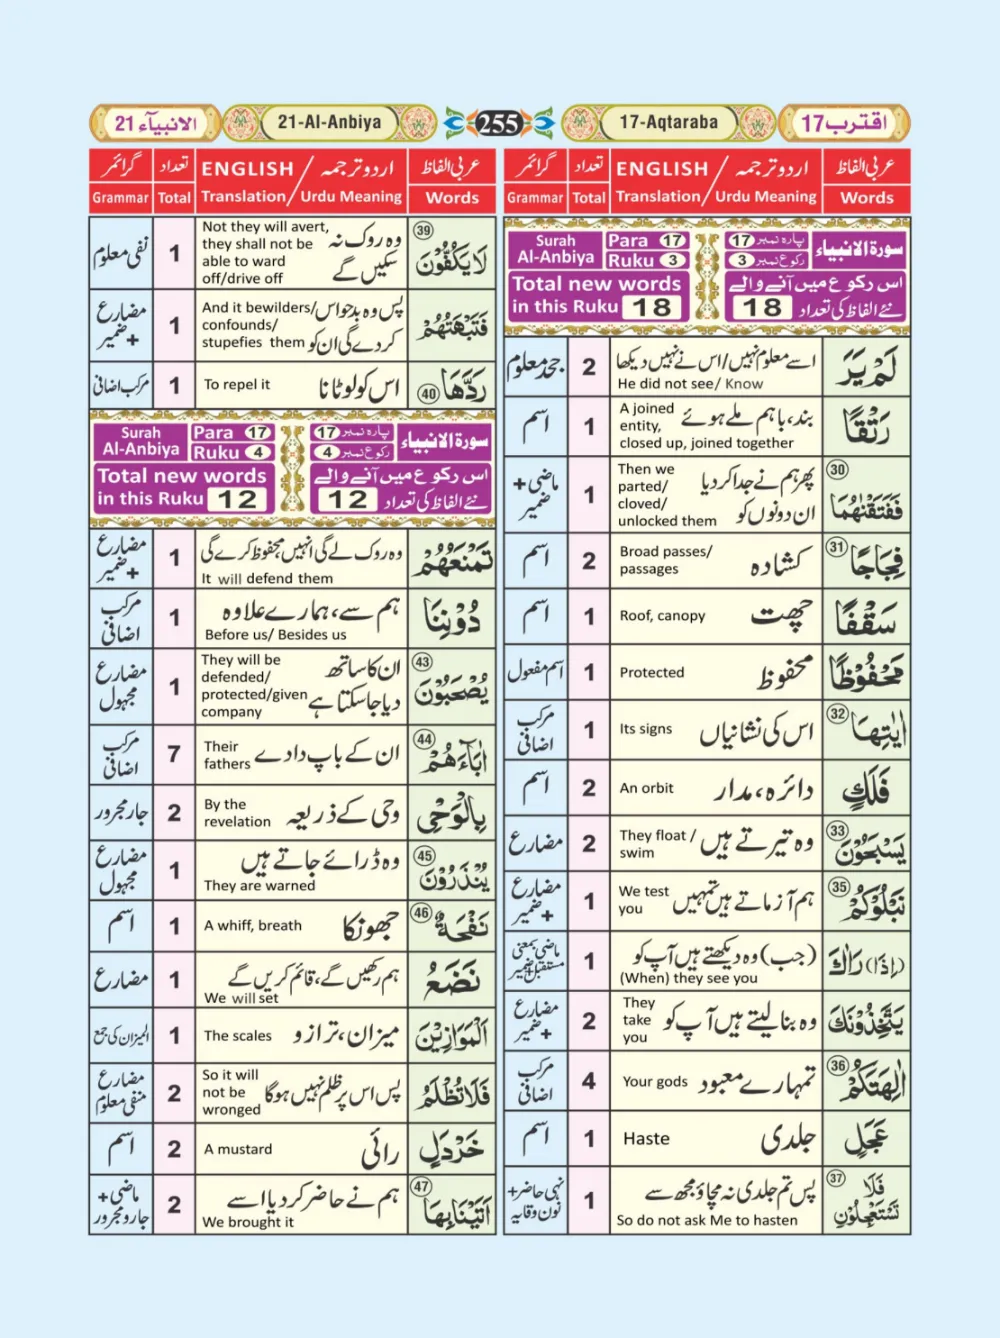 اقترب 17
17-Aqtaraba
255
21-Al-Anbiya
الانبیآء 21
عربی الفاظ
اردو ترجمہ / ENGLISH
تعداد
گرائمر
Words
Translation / Urdu Meaning
Total
Grammar
سورة الانبیاء
پارہ نمبر 17
رکوع نمبر 3
Surah Al-Anbiya
Para 17
Ruku 3
اس رکوع میں آنے والے
نئے الفاظ کی تعداد 18
Total new words
in this Ruku 18
لَمْ يَرَ
اسے معلوم نہیں/اس نے نہیں دیکھا
He did not see/ Know
2
جحد معلوم
رَتْقًا
بند، باہم ملے ہوئے
A joined
entity,
closed up, joined together
1
اسم
30
فَفَتَقْنٰهُمَا
پھر ہم نے جدا کر دیا
ان دونوں کو
Then we
parted/
cloved/
unlocked them
1
ماضی +
ضمیر
31
فِجَاجًا
کشادہ
Broad passes/
passages
2
اسم
سَقْفًا
چھت
Roof, canopy
1
اسم
مَّحْفُوْظًا
محفوظ
Protected
1
اسم مفعول
32
اٰيٰتِهَا
اس کی نشانیاں
Its signs
1
مرکب
اضافی
فَلَكٍ
دائرہ، مدار
An orbit
2
اسم
33
يَّسْبَحُوْنَ
وہ تیرتے ہیں
They float /
swim
2
مضارع
35
نَبْلُوْكُمْ
ہم آزماتے ہیں تمہیں
We test
you
1
مضارع
+ضمیر
(اِذَا) رَاٰكَ
(جب) وہ دیکھتے ہیں آپ کو
(When) they see you
1
ماضی بمعنی
مستقبل+ضمیر
يَتَّخِذُوْنَكَ
وہ بنا لیتے ہیں آپ کو
They
take
you
2
مضارع
+ضمیر
36
اٰلِهَتَكُمْ
تمہارے معبود
Your gods
4
مرکب
اضافی
عَجَلٍ
جلدی
Haste
1
اسم
37
فَلَا
تَسْتَعْجِلُوْنِ
پس تم جلدی نہ مچاؤ مجھ سے
So do not ask Me to hasten
1
نہی حاضر+
نون وقایہ
عربی الفاظ
اردو ترجمہ / ENGLISH
تعداد
گرائمر
Words
Translation / Urdu Meaning
Total
Grammar
39
لَا يَكُفُّوْنَ
وہ روک نہ
سکیں گے
Not they will avert,
they shall not be
able to ward
off/drive off
1
نفی معلوم
فَتَبْهَتُهُمْ
پس وہ بدحواس
کر دے گی ان کو
And it bewilders/
confounds/
stupefies them
1
مضارع
+ضمیر
40
رَدَّهَا
اس کو لوٹانا
To repel it
1
مرکب اضافی
سورة الانبیاء
پارہ نمبر 17
رکوع نمبر 4
Surah Al-Anbiya
Para 17
Ruku 4
اس رکوع میں آنے والے
نئے الفاظ کی تعداد 12
Total new words
in this Ruku 12
تَمْنَعُهُمْ
وہ روک لے گی انہیں محفوظ کرے گی
It will defend them
1
مضارع
+ضمیر
دُوْنِنَا
ہم سے، ہمارے علاوہ
Before us/ Besides us
1
مرکب
اضافی
43
يُصْحَبُوْنَ
ان کا ساتھ
دیا جا سکتا ہے
They will be
defended/
protected/given
company
1
مضارع
مجہول
44
اٰبَآءَهُمْ
ان کے باپ دادے
Their
fathers
7
مرکب
اضافی
بِالْوَحْيِ
وحی کے ذریعہ
By the
revelation
2
جار مجرور
45
يُنْذَرُوْنَ
وہ ڈرائے جاتے ہیں
They are warned
1
مضارع
مجہول
46
نَفْحَةٌ
جھونکا
A whiff, breath
1
اسم
نَضَعُ
ہم رکھیں گے، قائم کریں گے
We will set
1
مضارع
الْمَوَازِيْنَ
میزان، ترازو
The scales
1
المیزان کی جمع
فَلَا تُظْلَمُ
پس اس پر ظلم نہیں ہوگا
So it will
not be
wronged
2
مضارع
منفی معلوم
خَرْدَلٍ
رائی
A mustard
2
اسم
47
اَتَيْنَا بِهَا
ہم نے حاضر کر دیا اسے
We brought it
2
ماضی +
جار ومجرور